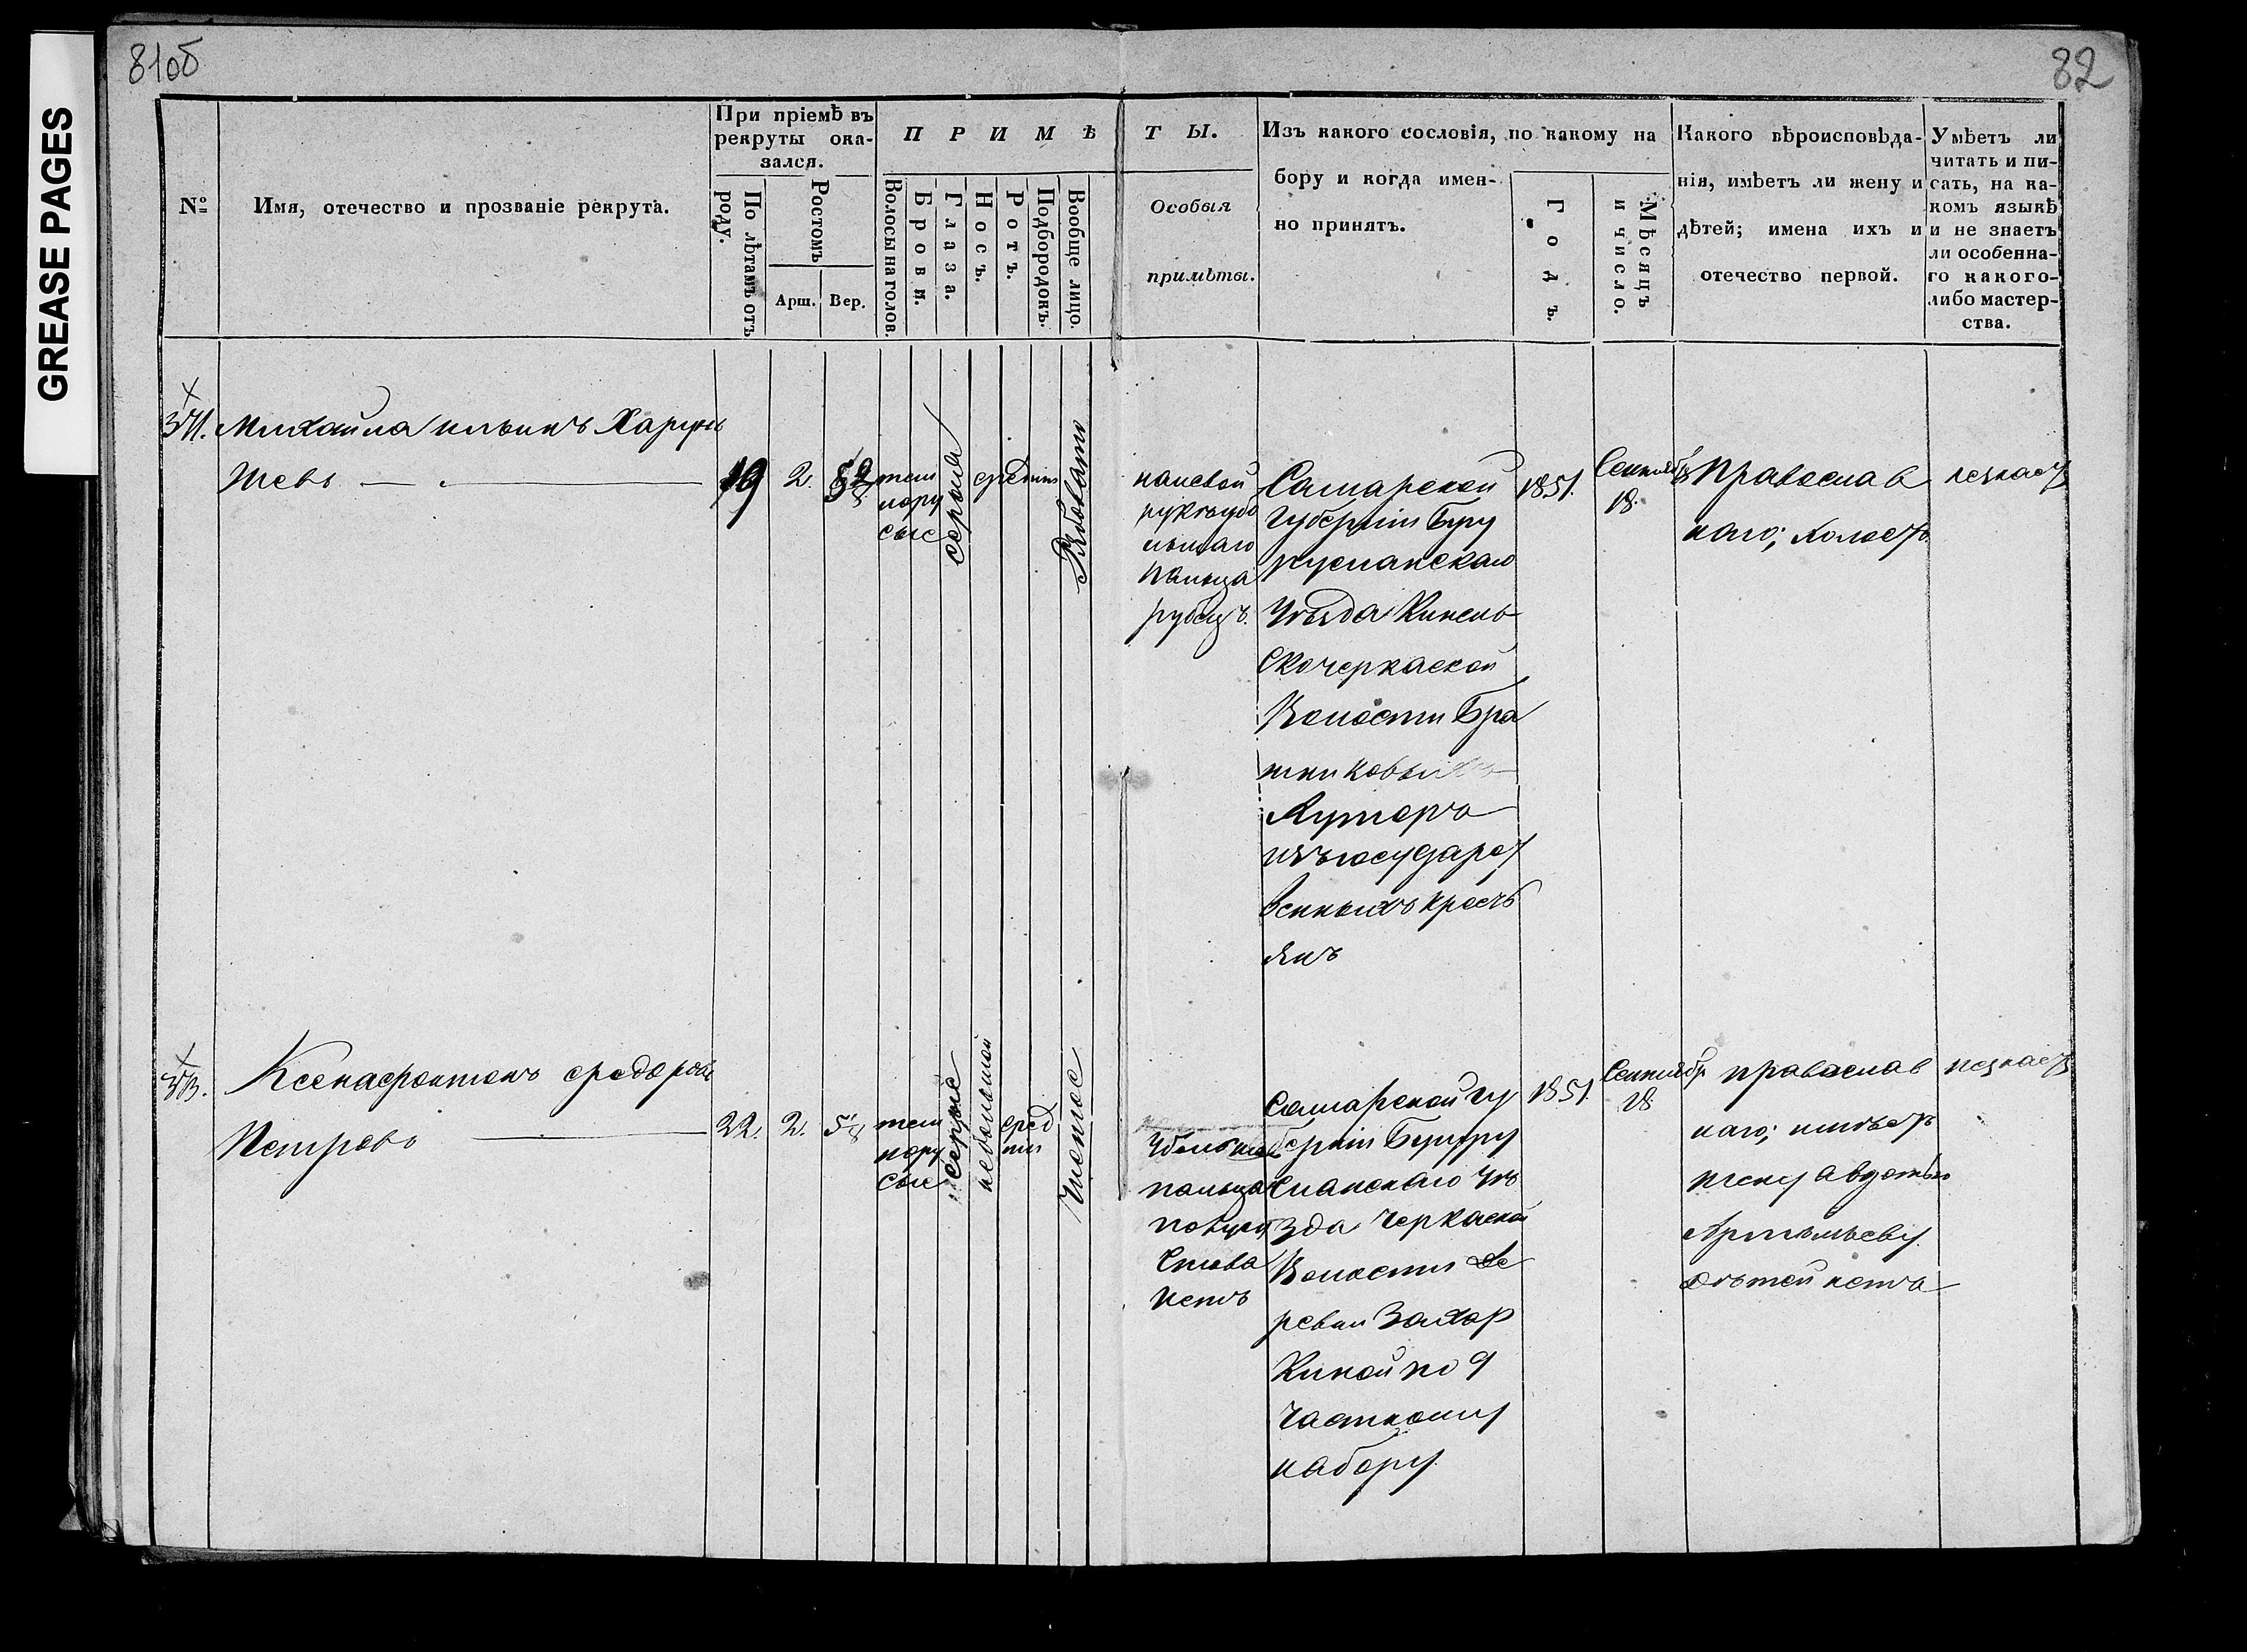 GREASE PAGES
81об
82
№
Имя, отечество и прозваніе рекрута.
При пріемѣ въ
рекруты ока-
зался.
По лѣтамъ отъ
роду.
Ростомъ
Арш.
Вер.
ПРИМѢ
Волосы на голов.
Брови.
Глаза.
Носъ.
Ротъ.
Подбородокъ.
Вообще лицо.
ТЫ.
Особыя
примѣты.
Изъ какого сословія, по какому на
бору и когда имен-
но принятъ.
Годъ.
Мѣсяцъ
и число.
Какого вѣроисповѣда-
нія, имѣетъ ли жену и
дѣтей; имена ихъ и
отечество первой.
Умѣетъ ли
читать и пи-
сать, на ка-
комъ языкѣ
и не знаетъ
ли особенна-
го какого-
либо мастер-
ства.
Михайла ильинъ
19
2.
тем
нору
сые
серыя
средній
Рябовато
налевой
руки
пальца
рубецъ.
Самарской
Губерніи Бугу
русланскаго
Уѣзда Кинель
Скочеркаской
Волости Бра
тниковыхъ
Хутора
изъ государст
венныхъ кресть
янъ
1851.
Сентября
18.
Православ
наго; холостъ
незнаетъ
Ксенафонтовъ Федоровъ
Петровъ
22.
2.
5 1/8
тем
нору
сые
серые
небольшой
сред
ній
Чистое
пальца
Самарской гу
берніи Бугуру
сланскаго уѣ
зда Черкаской
Волости де
ревни Захар
Киной по 9
частному
набору.
1851.
Сентября
18
православ
наго; имѣетъ
жену Авдотью
Артемьеву.
дѣтей нетъ
незнаетъ